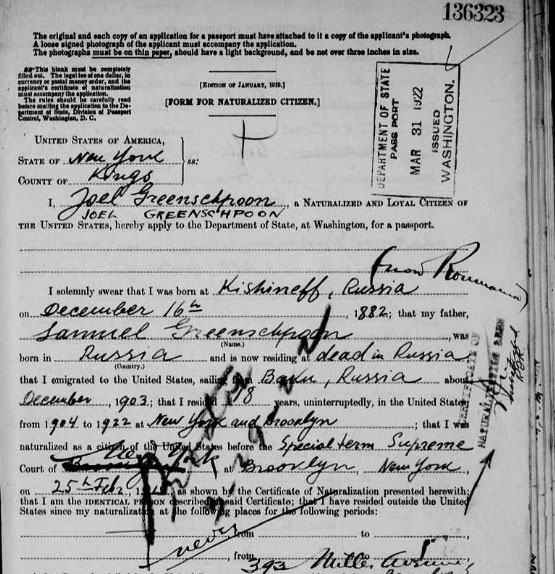 136323
The original and each copy of an application for a passport must have attached to it a copy of the applicant's photograph.
A loose signed photograph of the applicant must accompany the application.
The photographs must be on thin paper, should have a light background, and be not over three inches in size.
This blank must be completely
filled out. The legal fee of one dollar, in
currency or postal money order, and the
applicant's certificate of naturalization
must accompany the application.
The rules should be carefully read
before mailing the application to the De-
partment of State, Division of Passport
Control, Washington, D. C.
[EDITION OF JANUARY, 1919.]
[FORM FOR NATURALIZED CITIZEN.]
DEPARTMENT OF STATE
PASSPORT
MAR 31 1922
ISSUED
WASHINGTON.
UNITED STATES OF AMERICA,
STATE OF New York
ss:
COUNTY OF Kings
I, Joel Greenschpoon, a NATURALIZED AND LOYAL CITIZEN OF
JOEL GREENSCHPOON
THE UNITED STATES, hereby apply to the Department of State, at Washington, for a passport.
(now Roumania)
I solemnly swear that I was born at Kishineff, Russia
on December 16th, 1882; that my father,
Samuel Greenschpoon, was
(Name.)
born in Russia and is now residing at dead in Russia
(Country.)
that I emigrated to the United States, sailing from Baku, Russia about
December, 1903; that I resided 18 years, uninterruptedly, in the United States,
from 1904 to 1922 at New York and Brooklyn; that I was
naturalized as a citizen of the United States before the Special term Supreme
Court of New York at Brooklyn, New York
on 25th Feb, as shown by the Certificate of Naturalization presented herewith;
that I am the IDENTICAL PERSON described in said Certificate; that I have resided outside the United
States since my naturalization at the following places for the following periods:
never from to
, from to
393 Miller Avenue,